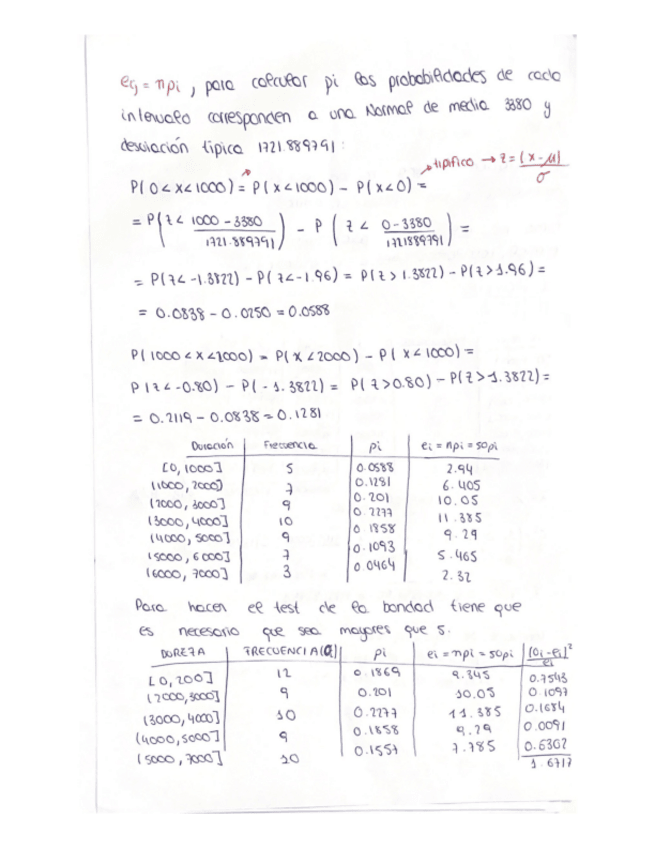 ei = npi, para calcular pi las probabilidades de cada
intervalo corresponden a una Normal de media 3380 y
desviación típica 1721.889791:
tipifico → z = (x-μ)/σ
P(0<x<1000) = P(x<1000) - P(x<0) =
= P(z < (1000-3380)/1721.889791) - P(z < (0-3380)/1721889791) =
= P(z<-1.3822) - P(z<-1.96) = P(z>1.3822) - P(z>1.96) =
= 0.0838 - 0.0250 = 0.0588
P(1000<x<2000) = P(x<2000) - P(x<1000) =
P(z<-0.80) - P(-1.3822) = P(z>0.80) - P(z>1.3822) =
= 0.2119 - 0.0838 = 0.1281
Duración Frecuencia pi ei = npi = 50pi
[0,1000] 5 0.0588 2.94
(1000,2000] 7 0.1281 6.405
(2000,3000] 9 0.201 10.05
(3000,4000] 10 0.2277 11.385
(4000,5000] 9 0.1858 9.29
(5000,6000] 7 0.1093 5.465
(6000,7000] 3 0.0464 2.32
Para hacer el test de la bondad tiene que
es necesario que sea mayores que 5.
DUREZA FRECUENCIA(Oi) pi ei = npi = 50pi (Oi-ei)²/ei
[0,200] 12 0.1869 9.345 0.7543
(2000,3000] 9 0.201 10.05 0.1097
(3000,4000] 10 0.2277 11.385 0.1684
(4000,5000] 9 0.1858 9.29 0.0091
(5000,7000] 10 0.1557 7.785 0.6302
1.6717